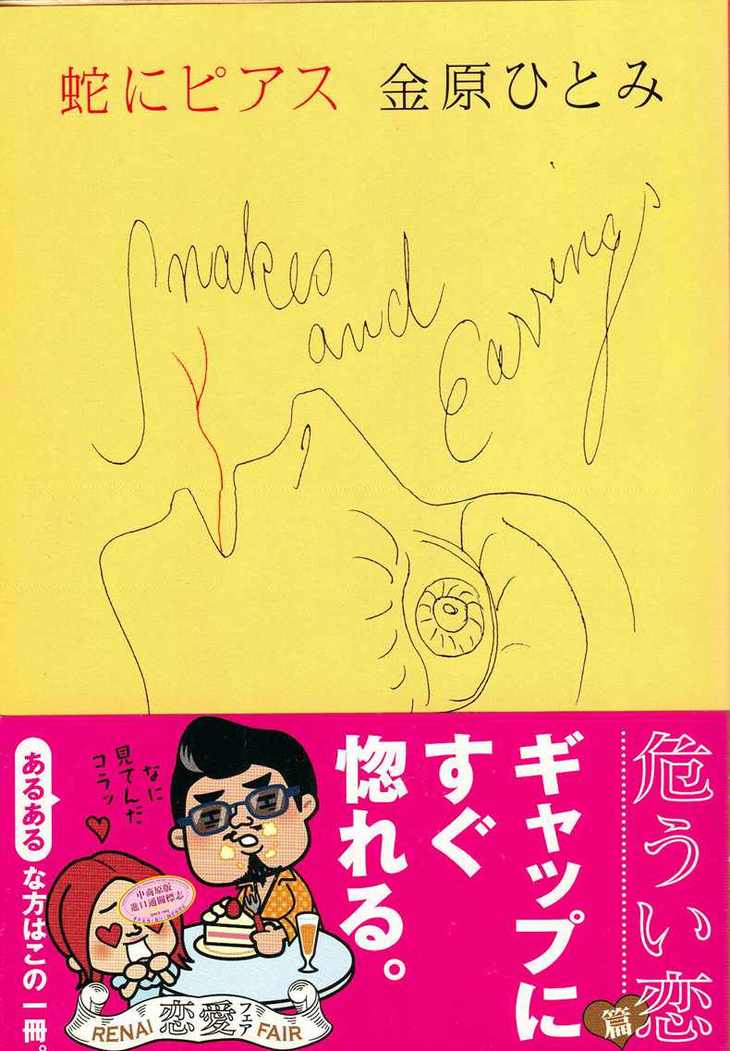 蛇にピアス 金原ひとみ
Snakes
and
Earrings
危うい恋
篇
ギャップに
すぐ
惚れる。
なに
見てんだ
コラッ
あるある な方はこの一冊。
中商原版
進口通關標志
RENAI 恋愛フェア FAIR